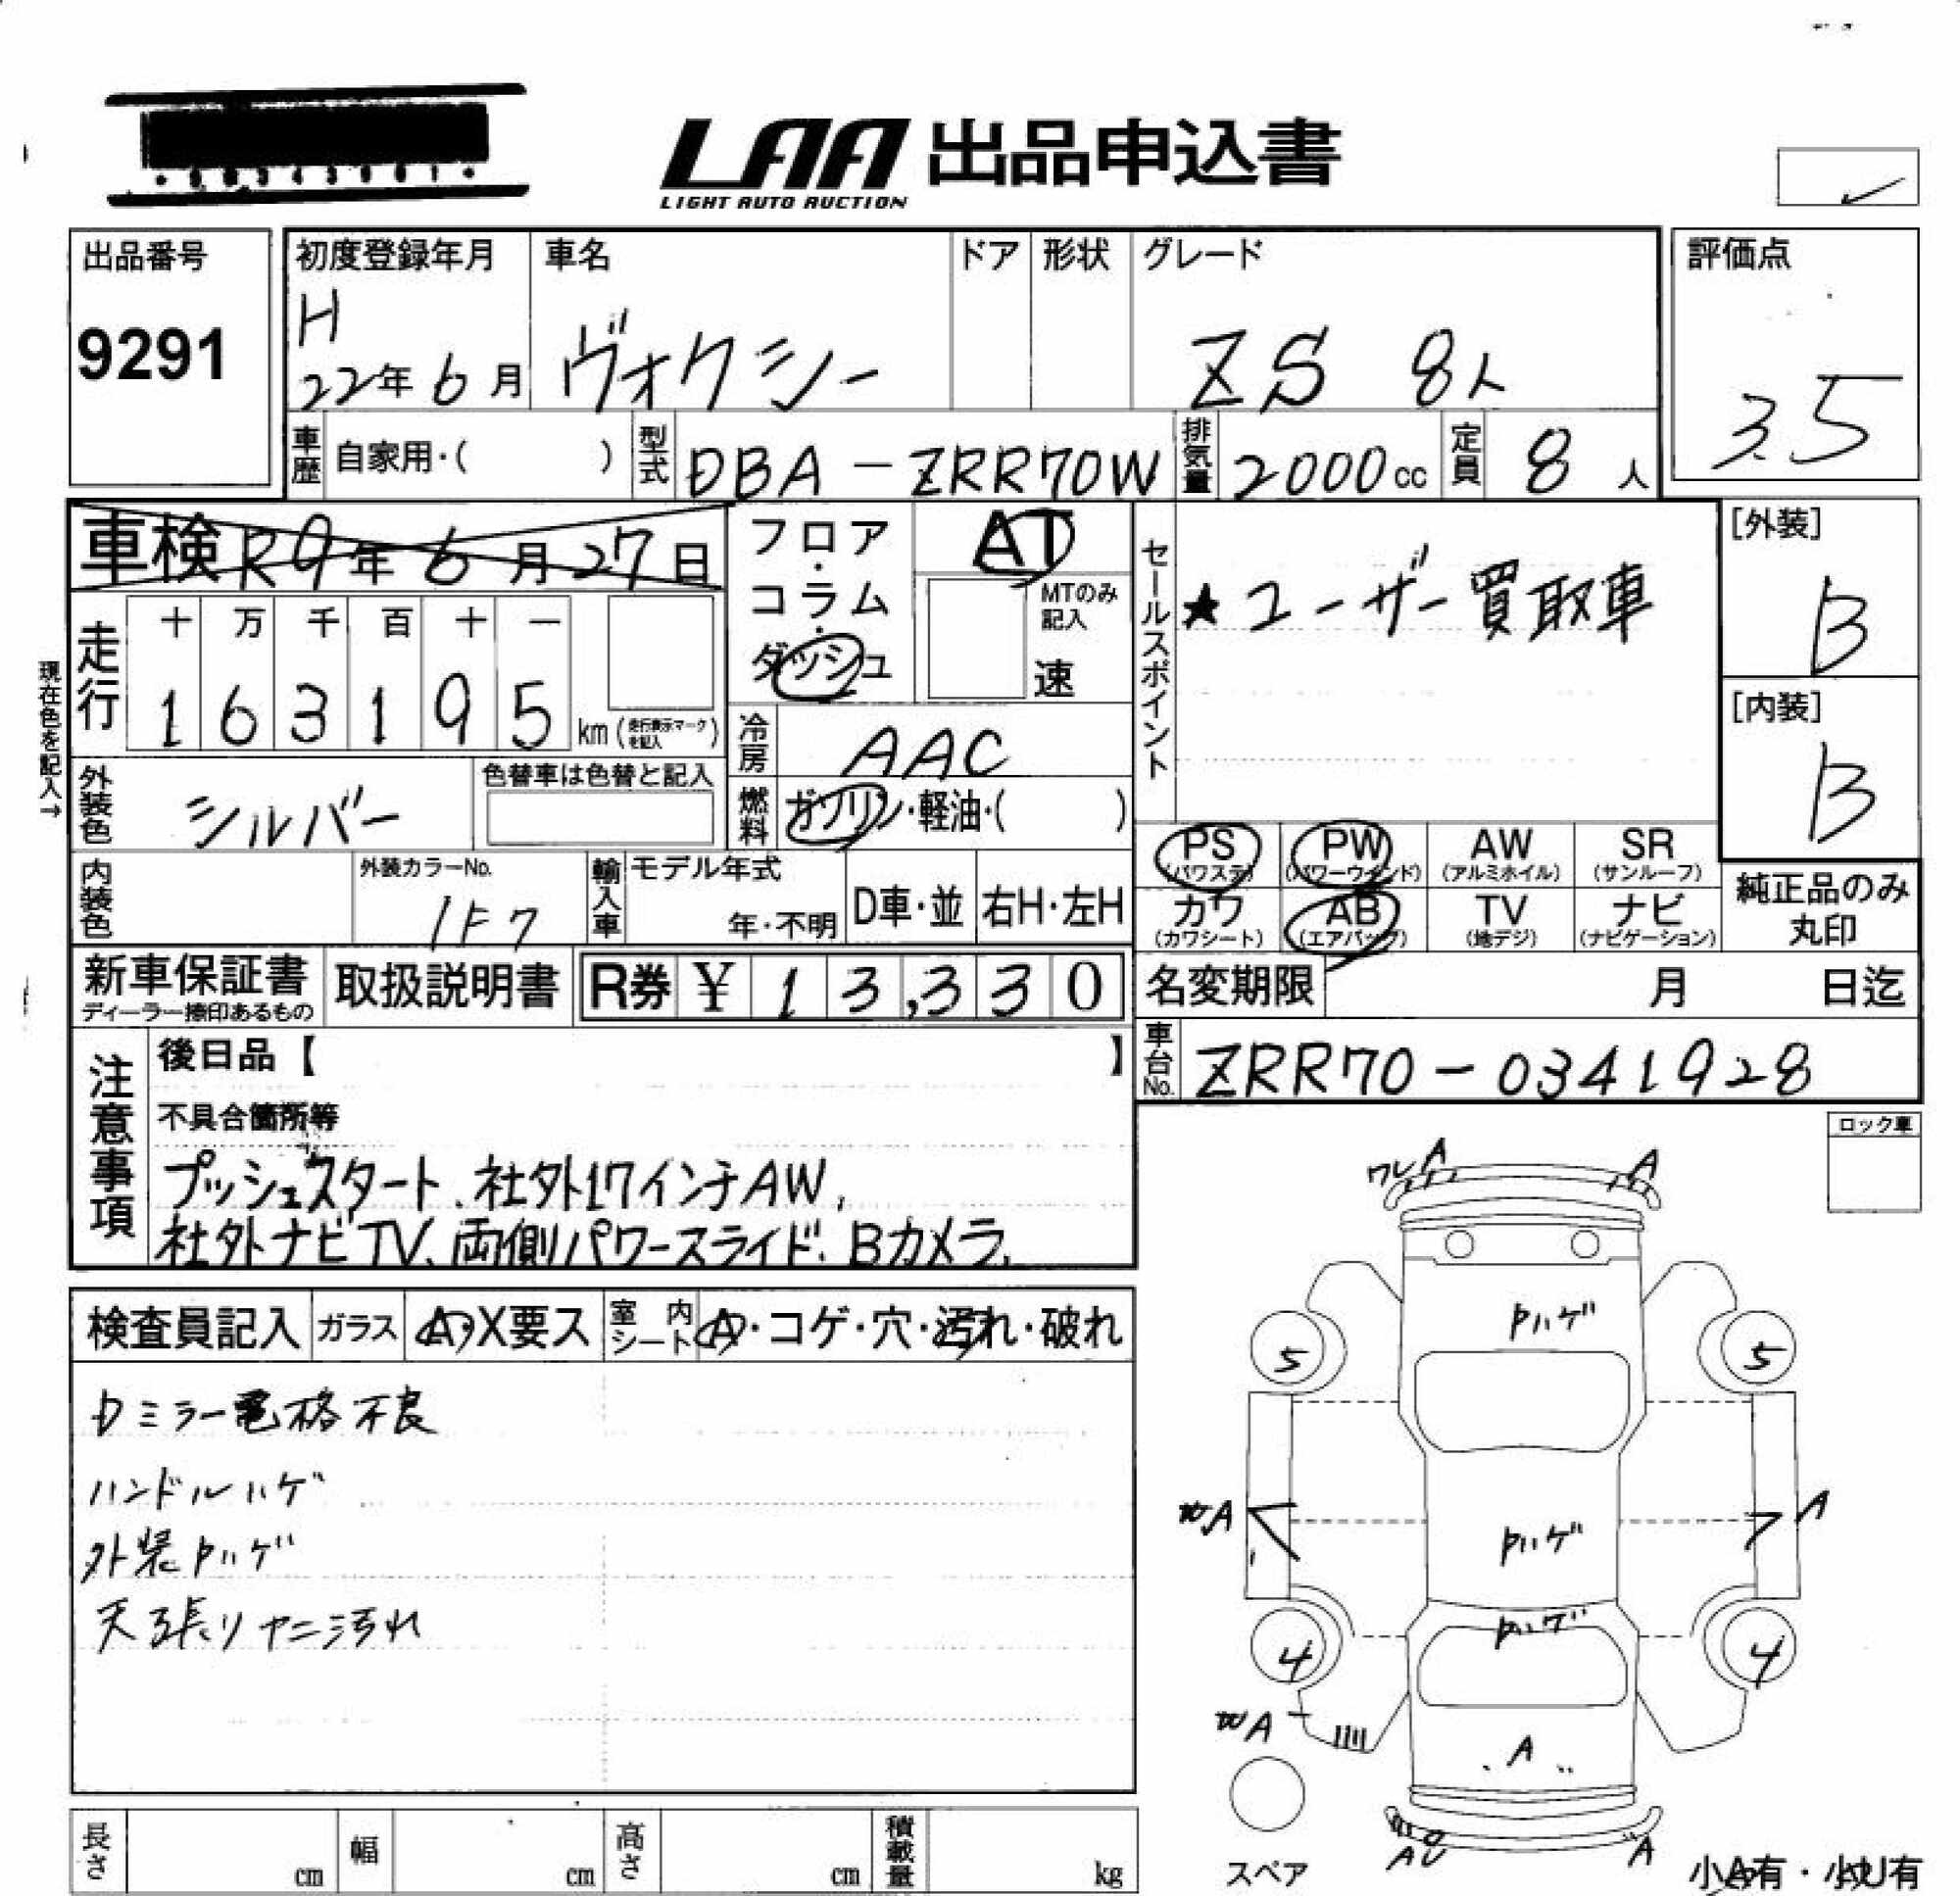 LAA 出品申込書
LIGHT AUTO AUCTION
出品番号
9291
初度登録年月
H
22年 6月
車名
ヴォクシー
ドア
形状
グレード
ZS 8人
評価点
3.5
車歴
自家用・( )
型式
DBA-ZRR70W
排気量
2000cc
定員
8人
車検 R9年 6月 27日
フロア・コラム・ダッシュ
AT
MTのみ記入
速
セールスポイント
★ユーザー買取車
[外装]
B
[内装]
B
現在色を記入→
走行
十 万 千 百 十 一
1 6 3 1 9 5 km (走行表示マークを記入)
冷房
AAC
外装色
シルバー
色替車は色替と記入
燃料
ガソリン・軽油・( )
PS (パワステ)
PW (パワーウインド)
AW (アルミホイル)
SR (サンルーフ)
カワ (カワシート)
AB (エアバッグ)
TV (地デジ)
ナビ (ナビゲーション)
純正品のみ
丸印
内装色
外装カラーNo.
1F7
輸入車
モデル年式
年・不明
D車・並
右H・左H
新車保証書
ディーラー捺印あるもの
取扱説明書
R券 ¥ 13,330
名変期限
月 日迄
車台No.
ZRR70-0341928
注意事項
後日品【 】
不具合箇所等
プッシュスタート、社外17インチAW、
社外ナビTV、両側パワースライド、Bカメラ、
ロック車
検査員記入
ガラス
A・X要ス
室内シート
A・コゲ・穴・汚れ・破れ
Dミラー電格不良
ハンドルハゲ
外装Pハゲ
天張りヤニ汚れ
ワレ A
A
Pハゲ
5
5
A
A
Pハゲ
Pハゲ
4
4
A
A
A
A
スペア
小A有・小U有
長さ
cm
幅
cm
高さ
cm
積載量
kg